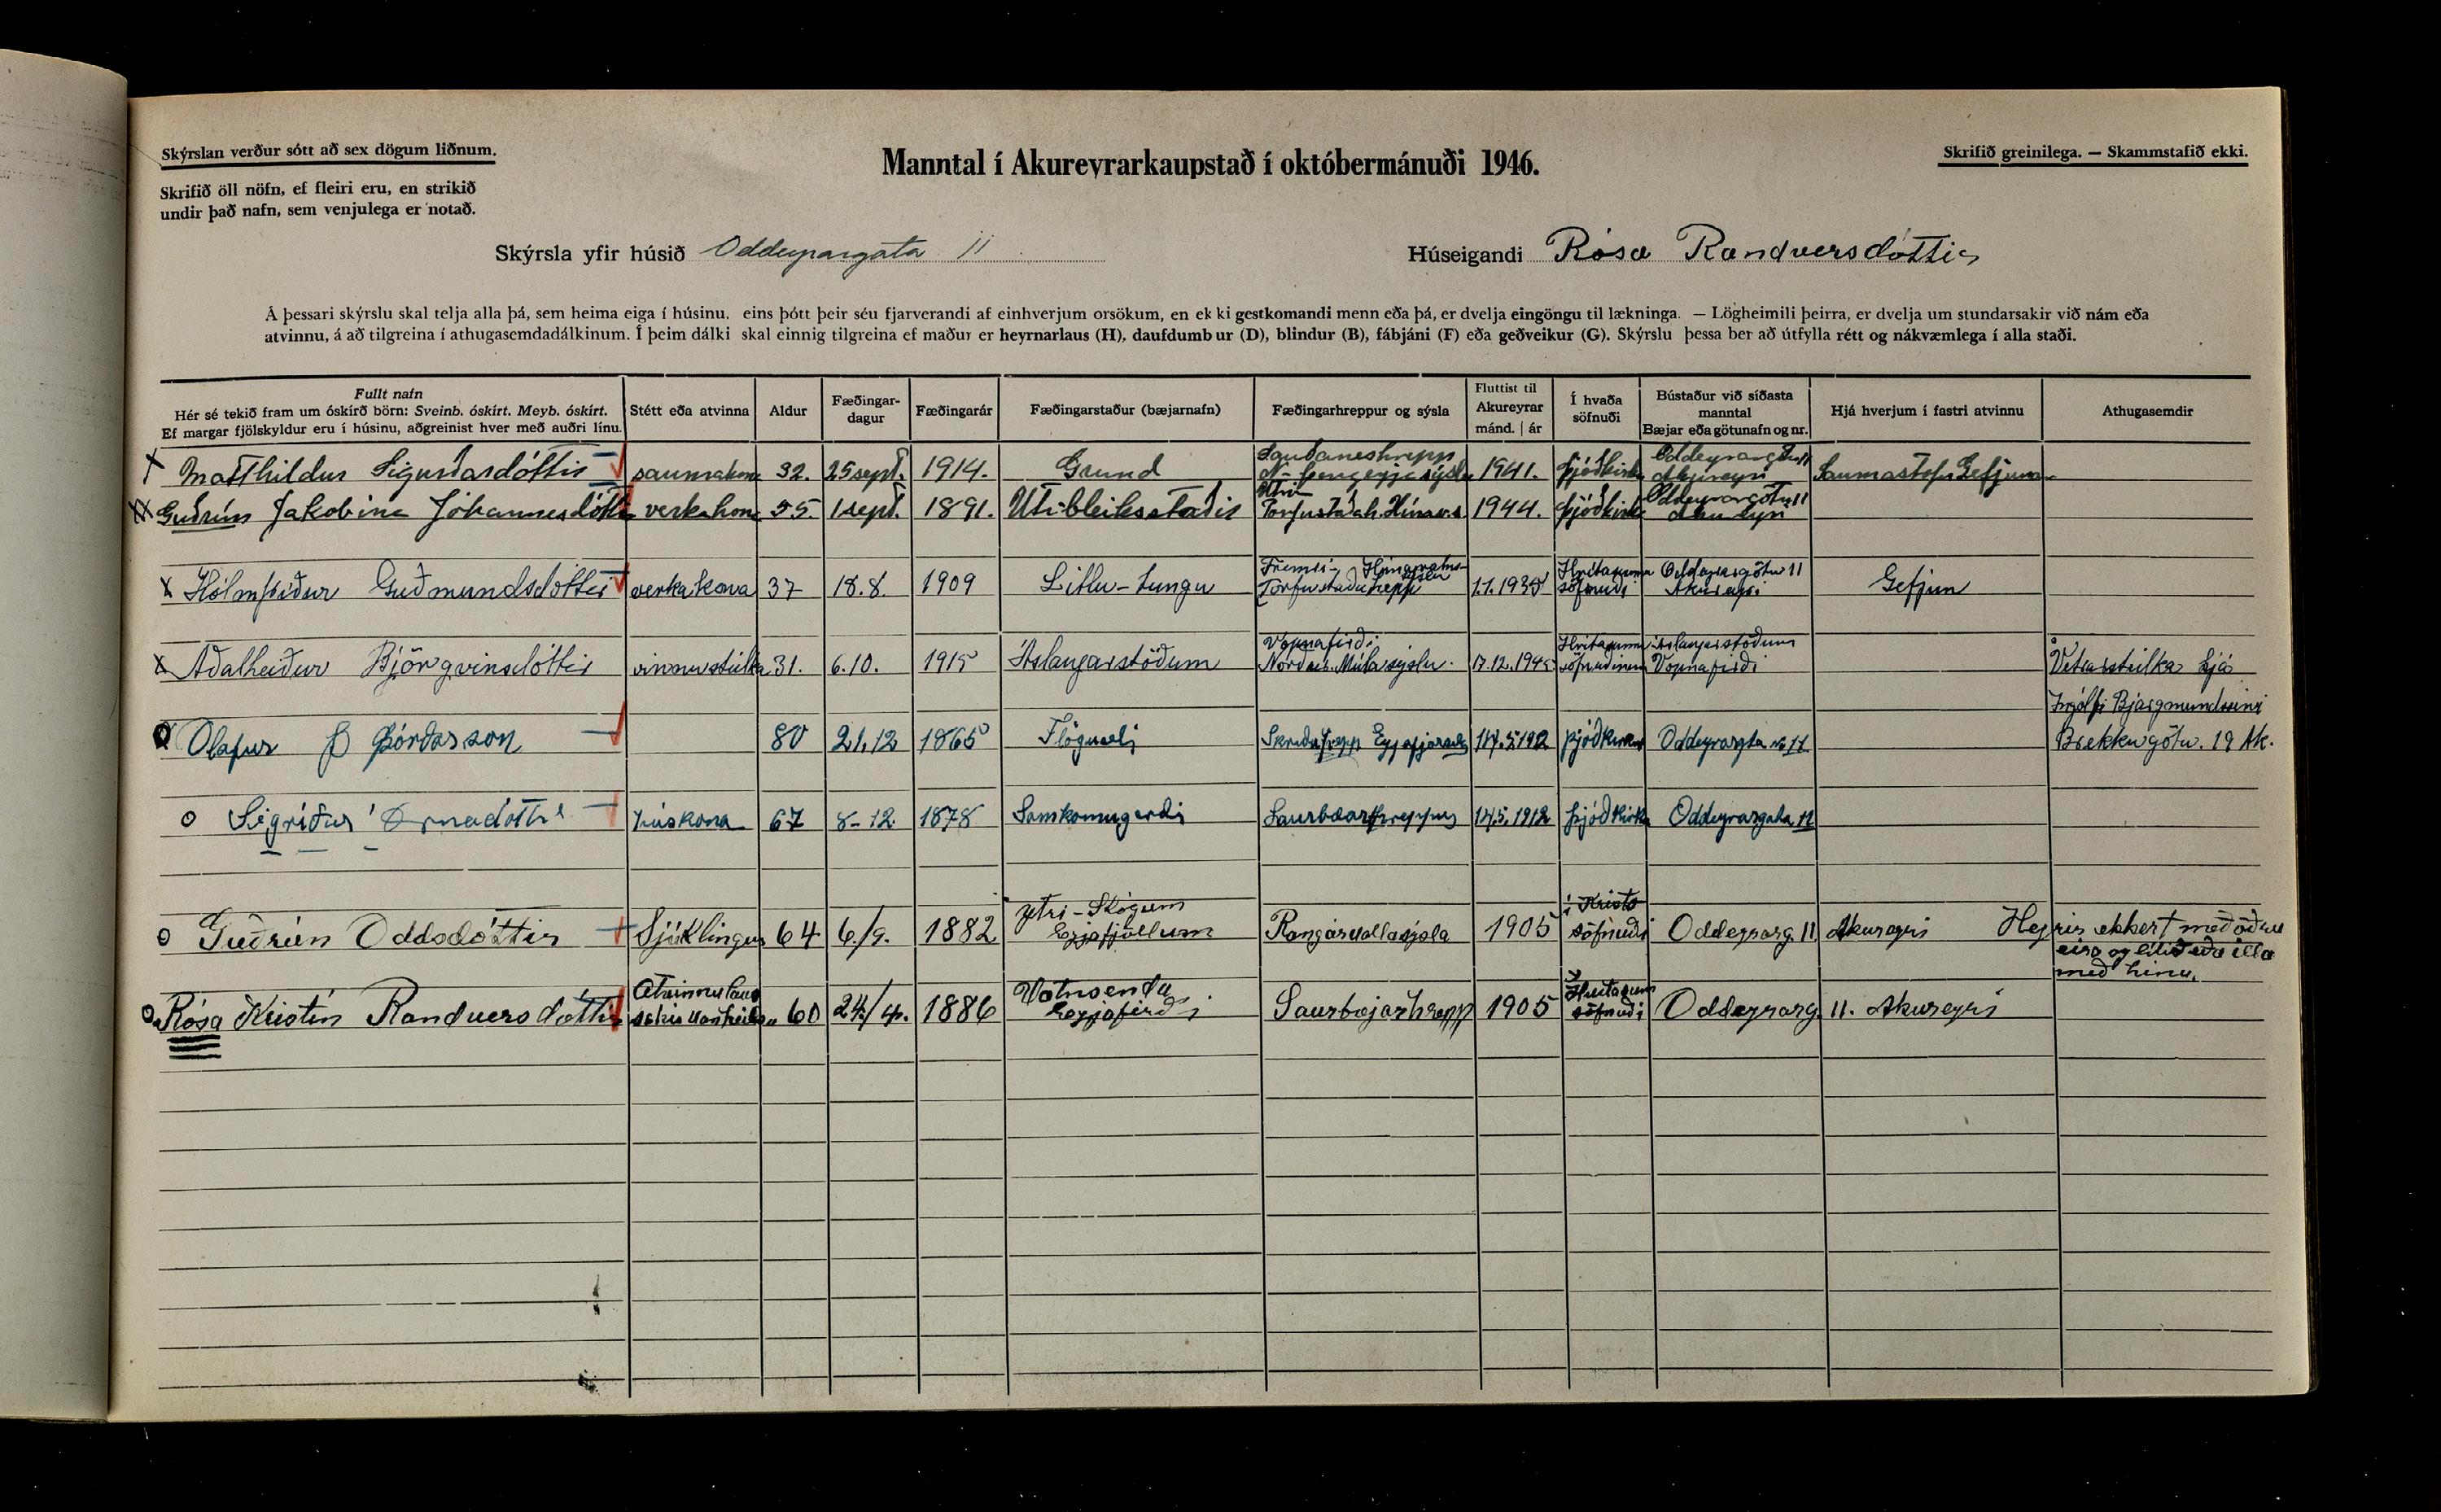 Skýrslan verður sótt að sex dögum liðnum.
Manntal í Akureyrarkaupstað í októbermánuði 1946.
Skrifið greinilega. — Skammstafið ekki.
Skrifið öll nöfn, ef fleiri eru, en strikið
undir það nafn, sem venjulega er notað.
Skýrsla yfir húsið Oddeyrargata 11
Húseigandi Rósa Randversdóttir
Á þessari skýrslu skal telja alla þá, sem heima eiga í húsinu, eins þótt þeir séu fjarverandi af einhverjum orsökum, en ekki gestkomandi menn eða þá, er dvelja eingöngu til lækninga. — Lögheimili þeirra, er dvelja um stundarsakir við nám eða
atvinnu, á að tilgreina í athugasemdadálkinum. Í þeim dálki skal einnig tilgreina ef maður er heyrnarlaus (H), daufdumbur (D), blindur (B), fábjáni (F) eða geðveikur (G). Skýrslu þessa ber að útfylla rétt og nákvæmlega í alla staði.
Fullt nafn
Hér sé tekið fram um óskírð börn: Sveinb. óskírt. Meyb. óskírt.
Ef margar fjölskyldur eru í húsinu, aðgreinist hver með auðri línu.
Stétt eða atvinna
Aldur
Fæðingar-
dagur
Fæðingarár
Fæðingarstaður (bæjarnafn)
Fæðingarhreppur og sýsla
Fluttist til
Akureyrar
mánd. | ár
Í hvaða
söfnuði
Bústaður við síðasta
manntal
Bæjar eða götunafn og nr.
Hjá hverjum í fastri atvinnu
Athugasemdir
Matthildur Sigurðardóttir saumakona 32. 25 sept. 1914. Grund Sauðaneshrepp N-Þingeyjasýslu 1941. Þjóðkirkju Oddeyrargötu 11 Akureyri Saumastofu Gefjunar
Guðrún Jakobína Jóhannesdóttir verkakona 55. 1 sept. 1891. Útibleiksstaðir Ytri Torfustaðah. Húnav.s 1944. Þjóðkirkj Oddeyrargötu 11 Akureyri
Hólmfríður Guðmundsdóttir verkakona 37 18.8. 1909 Litlu-tungu Fremri- Torfustaðahrepp Húnavatns-sýslu Hvítasunnu söfnuði Oddeyrargötu 11 Akureyri Gefjun
Aðalheiður Björgvinsdóttir vinnustúlka 31. 6.10. 1915 Áslaugarstöðum Vopnafirði Norður-Múlasýslu. 17.12.1945 Hvítasunnu söfnuðinum Áslaugarstöðum Vopnafirði Vetrarstúlka hjá
Bjargmundssini
Ólafur Þ Þórðarson 80 21.12 1865 Flöguseli Skriðuhrepp Eyjafjarðars Þjóðkirkju Oddeyrargata no 11 Brekkugötu. 19 Ak.
Sigríður Árnadóttir húskona 67 8-12 1878 Samkomugerdi Saurbæarhreppur 14.5.1912 Þjóðkirk Oddeyrargata 11
Guðrún Oddsdóttir Sjúklingur 64 6/9. 1882 Ytri-Skógum Eyjafjöllum Rangárvallasýsla 1905 í Krists söfnuði Oddeyrarg. 11 Akureyri Heyrir ekkert með öðru
eira og lítið eða illa
með hinu.
Rósa Kristín Randversdóttir Atvinnulaus sökum vanheilsu 60 24/4. 1886 Vatnsenda Eyjafirði Saurbæjarhrepp 1905 Hvítasun söfnuði Oddeyrarg 11. Akureyri